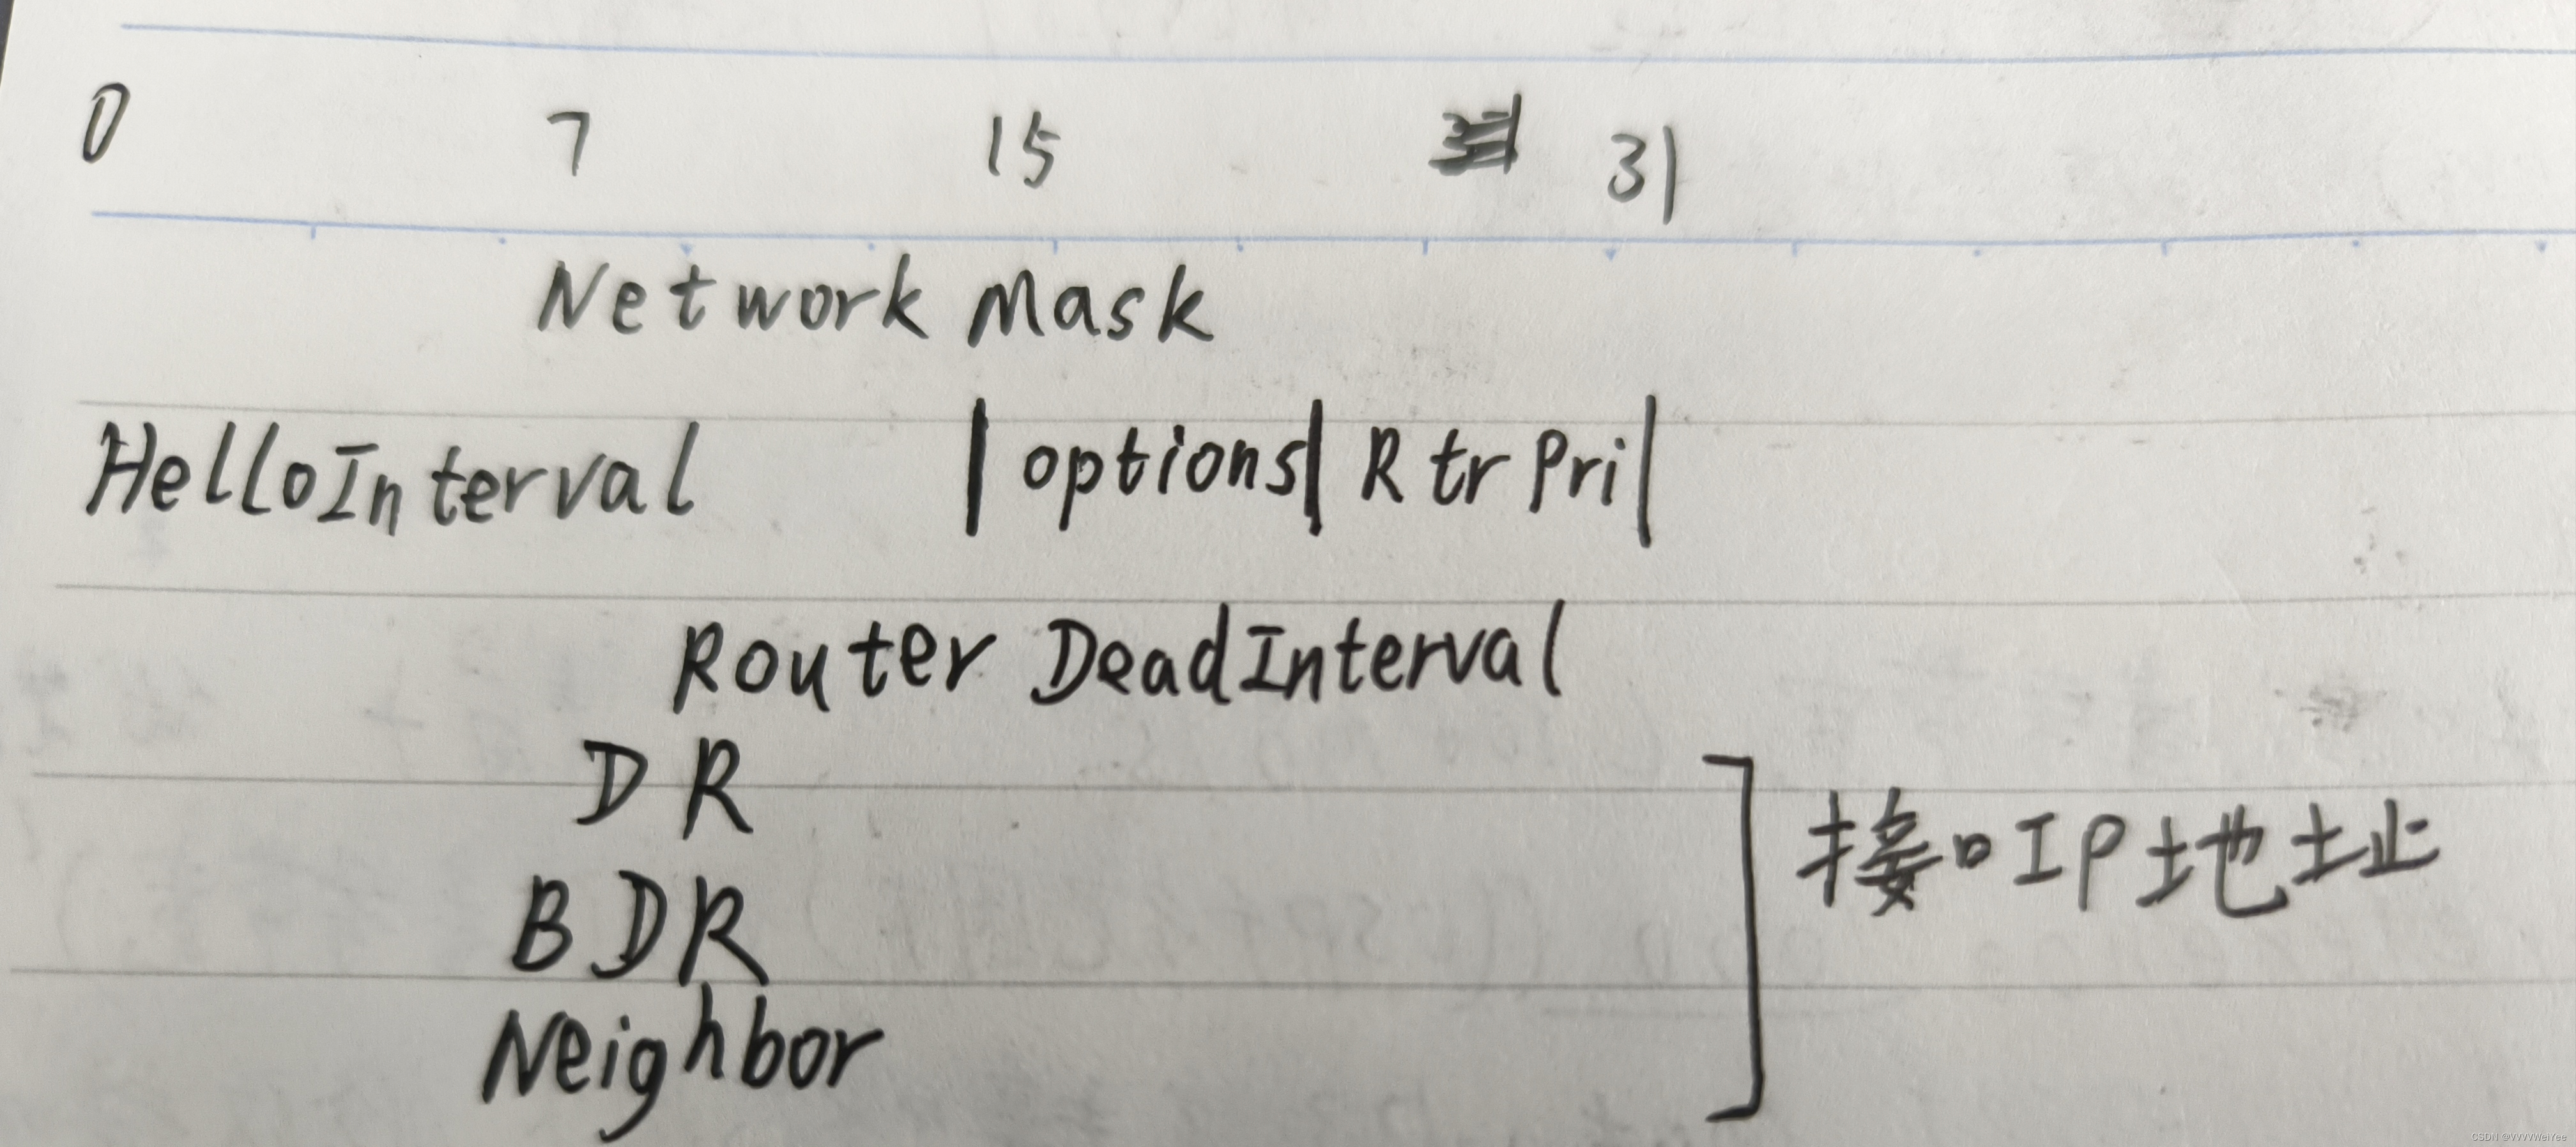 0 7 15 31
Network Mask
HelloInterval | options | Rtr Pri |
Router DeadInterval
DR
接口IP地址
BDR
Neighbor
CSDN @VVVVWeiYee